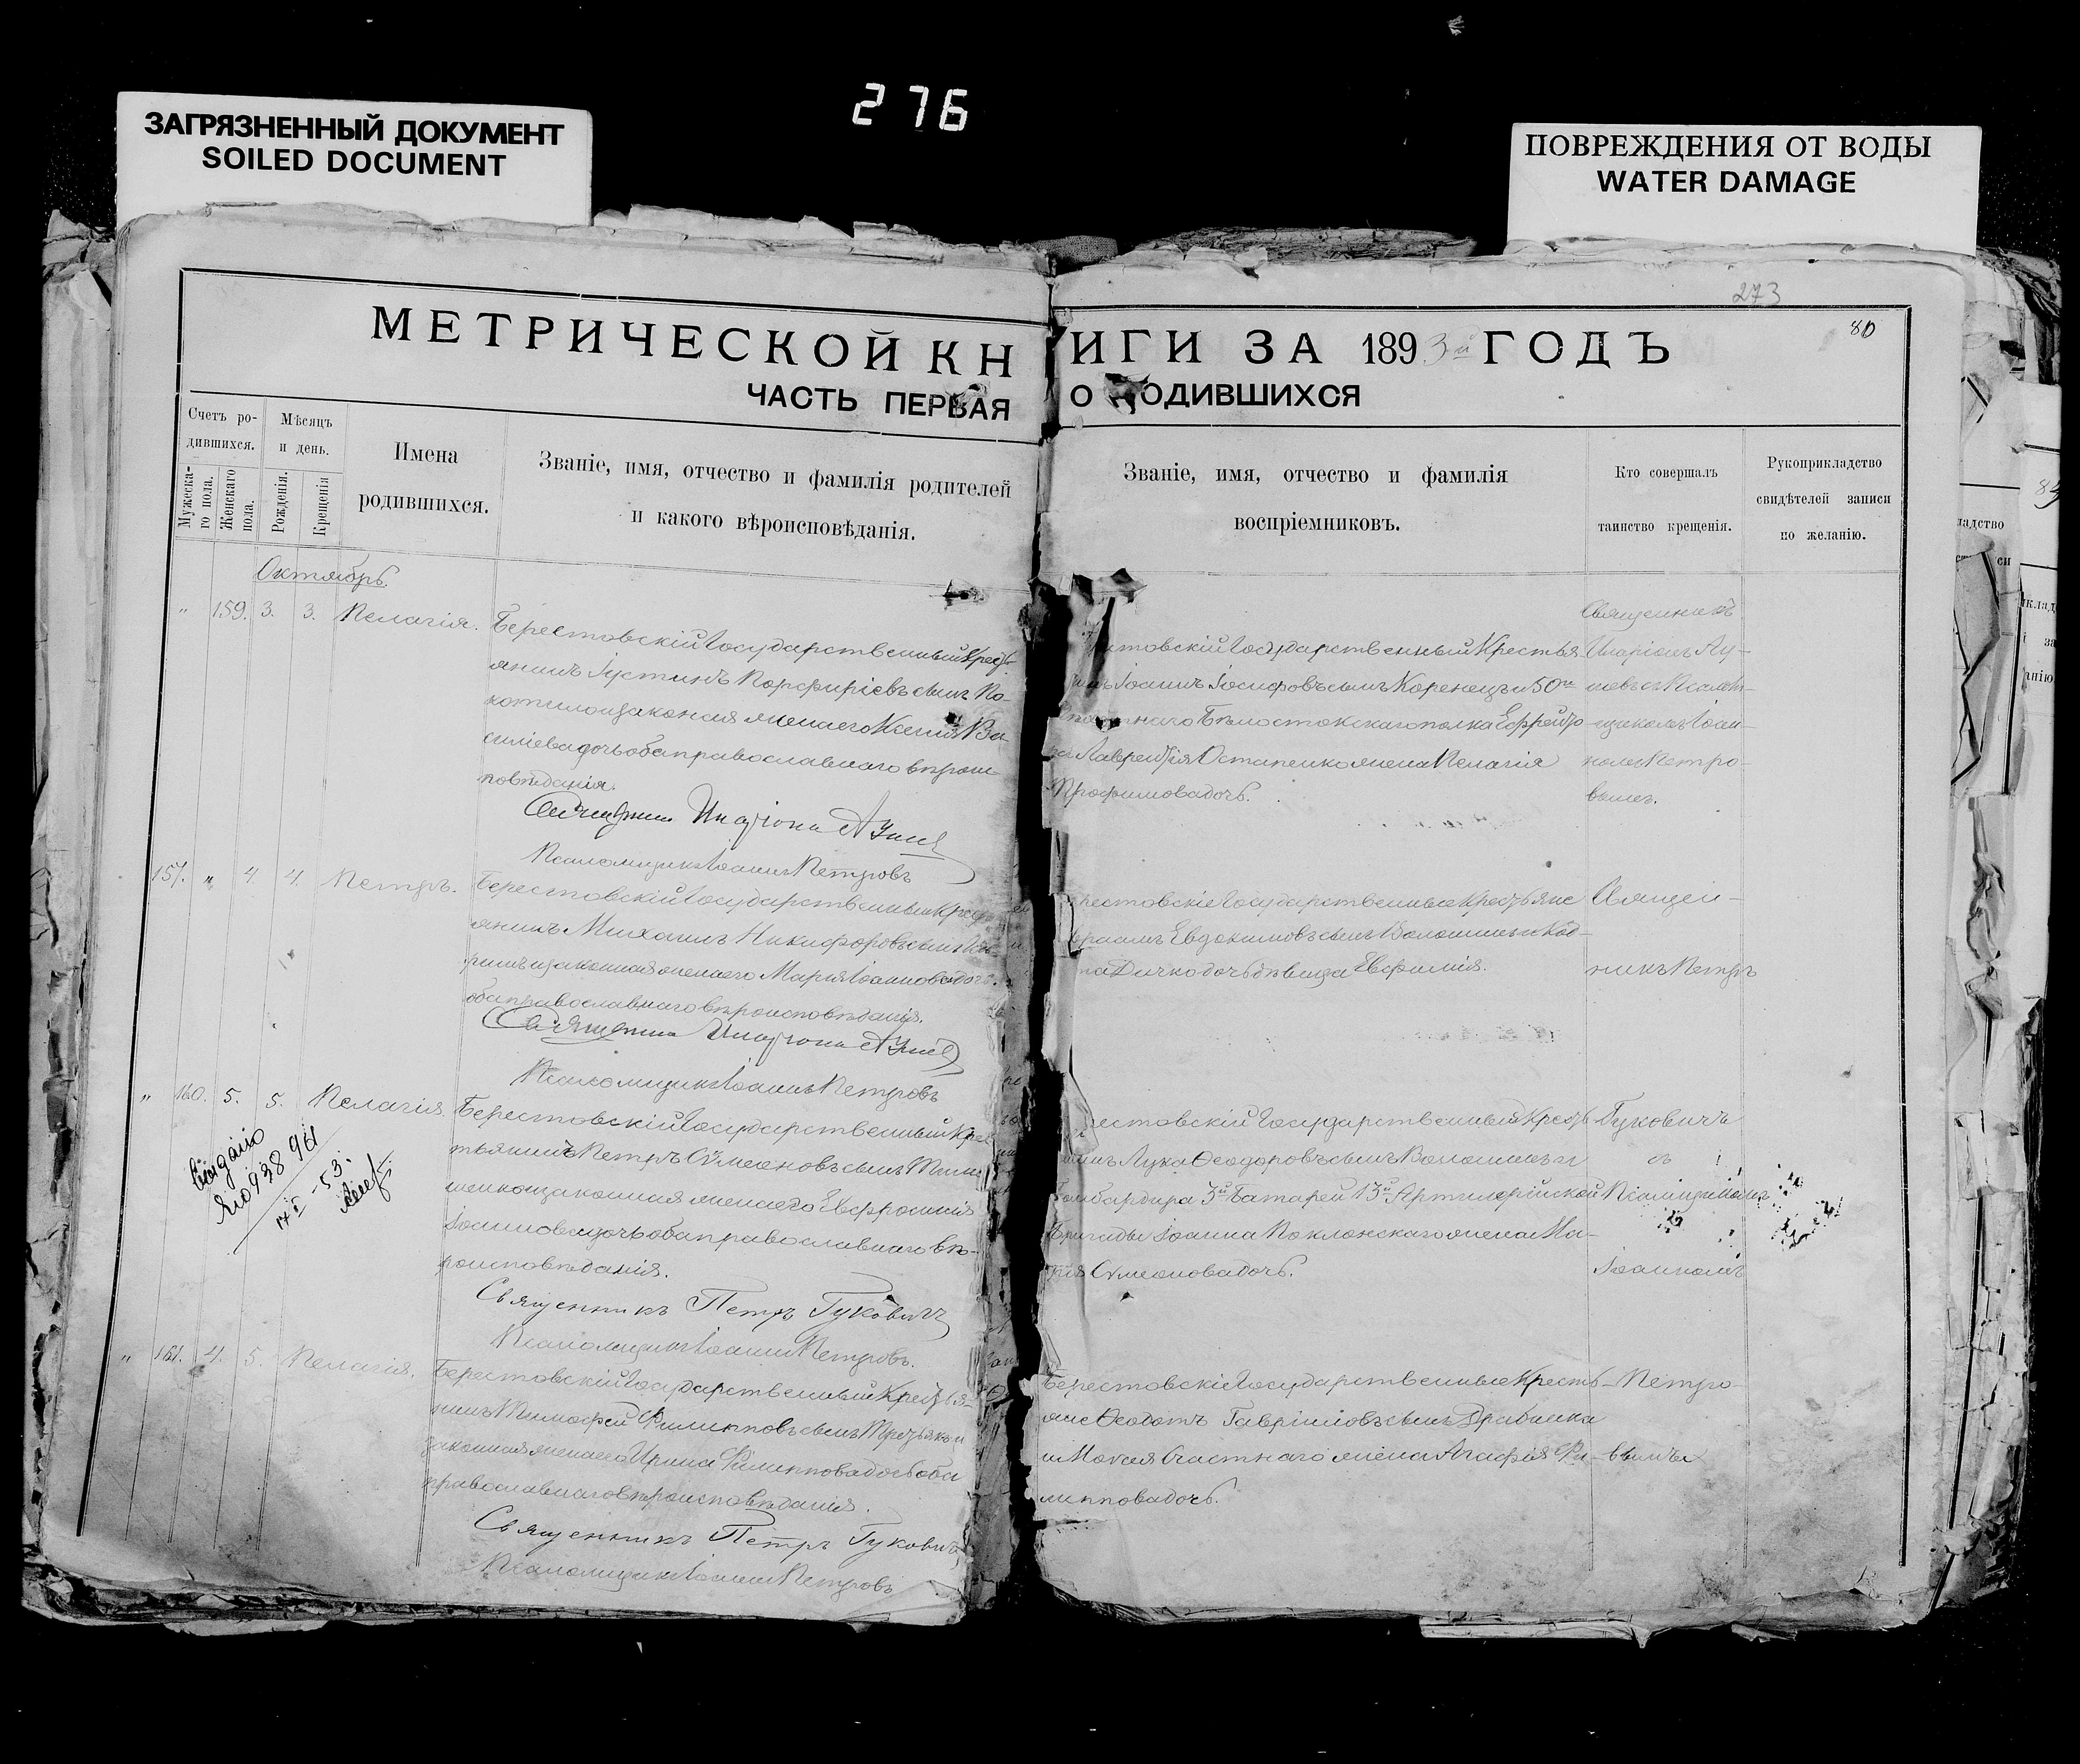 276
ЗАГРЯЗНЕННЫЙ ДОКУМЕНТ
SOILED DOCUMENT
ПОВРЕЖДЕНИЯ ОТ ВОДЫ
WATER DAMAGE
273
80
МЕТРИЧЕСКОЙ КНИГИ ЗА 1893й ГОДЪ
ЧАСТЬ ПЕРВАЯ О РОДИВШИХСЯ
Счетъ ро-
дившихся.
Мужеска-
го пола.
Женскаго
пола.
Мѣсяцъ
и день.
Рожденія.
Крещенія
Имена
родившихся.
Званіе, имя, отчество и фамилія родителей
и какого вѣроисповѣданія.
Званіе, имя, отчество и фамилія
воспріемниковъ.
Кто совершалъ
таинство крещенія.
Рукоприкладство
свидѣтелей записи
по желанію.
Октябрь.
" 159. 3. 3. Пелагія.
Берестовскій Государственный Кресть-
янинъ Іустинъ Порфиріевъ сынъ По-
котило и законная жена его Ксенія Ва-
силіева дочь оба православнаго вѣроис-
повѣданія.
Священникъ
Псаломщикъ Іоаннъ Петровъ
товскій Государственный Крестья
Іоаннъ Іосифовъ сынъ Коренецъ и 50го
Бѣлостокскаго полка Ефрейто-
ра Лаврентія Остапенко жена Пелагія
Трофимова дочь.
Священникъ
Иларіонъ Лу-
невъ съ Псалом-
щикомъ Іоан-
номъ Петро-
вымъ.
157. " 4. 4. Петръ.
Берестовскій Государственный Кресть-
янинъ Михаилъ Никифоровъ сынъ
и законная жена его Марія Іоаннова дочь
оба православнаго вѣроисповѣданія.
Священникъ
Псаломщикъ Іоаннъ Петровъ
рестовскіе Государственные Крестьяне
Евдокимовъ сынъ Волошинъ и
Дичко дочь дѣвица Евфимія.
Священ-
никъ Петръ
" 160. 5. 5. Пелагія.
Берестовскій Государственный Крес-
тьянинъ Петръ Сѵмеоновъ сынъ Тим
шенко и законная жена его Евфросинія
Іоаннова дочь оба православнаго вѣ-
роисповѣданія.
Священникъ Петръ Гуковичъ
Псаломщикъ Іоаннъ Петровъ.
рестовскій Государственный Кресть
Лука Ѳеодоровъ сынъ Волошинъ и
Бомбардира 3й Батареи 13й Артилерійской
Бригады Іоанна Поклонскаго жена Ма-
рія Сѵмеонова дочь.
Гуковичъ
съ
Псаломщикомъ
Іоанномъ
93894
" 161. 4. 5. Пелагія.
Берестовскій Государственный Крестья-
нинъ Тимофей Филипповъ сынъ Третьякъ и
законная жена его Ирина Филиппова дочь оба
православнаго вѣроисповѣданія.
Священникъ Петръ Гуковичъ
Псаломщикъ Іоаннъ Петровъ
Берестовскіе Государственные Кресть-
яне Ѳеодотъ Гавріиловъ сынъ Драбинка
и Моѵсея Счастнаго жена Агафія Фи-
липпова дочь.
Петро-
вымъ